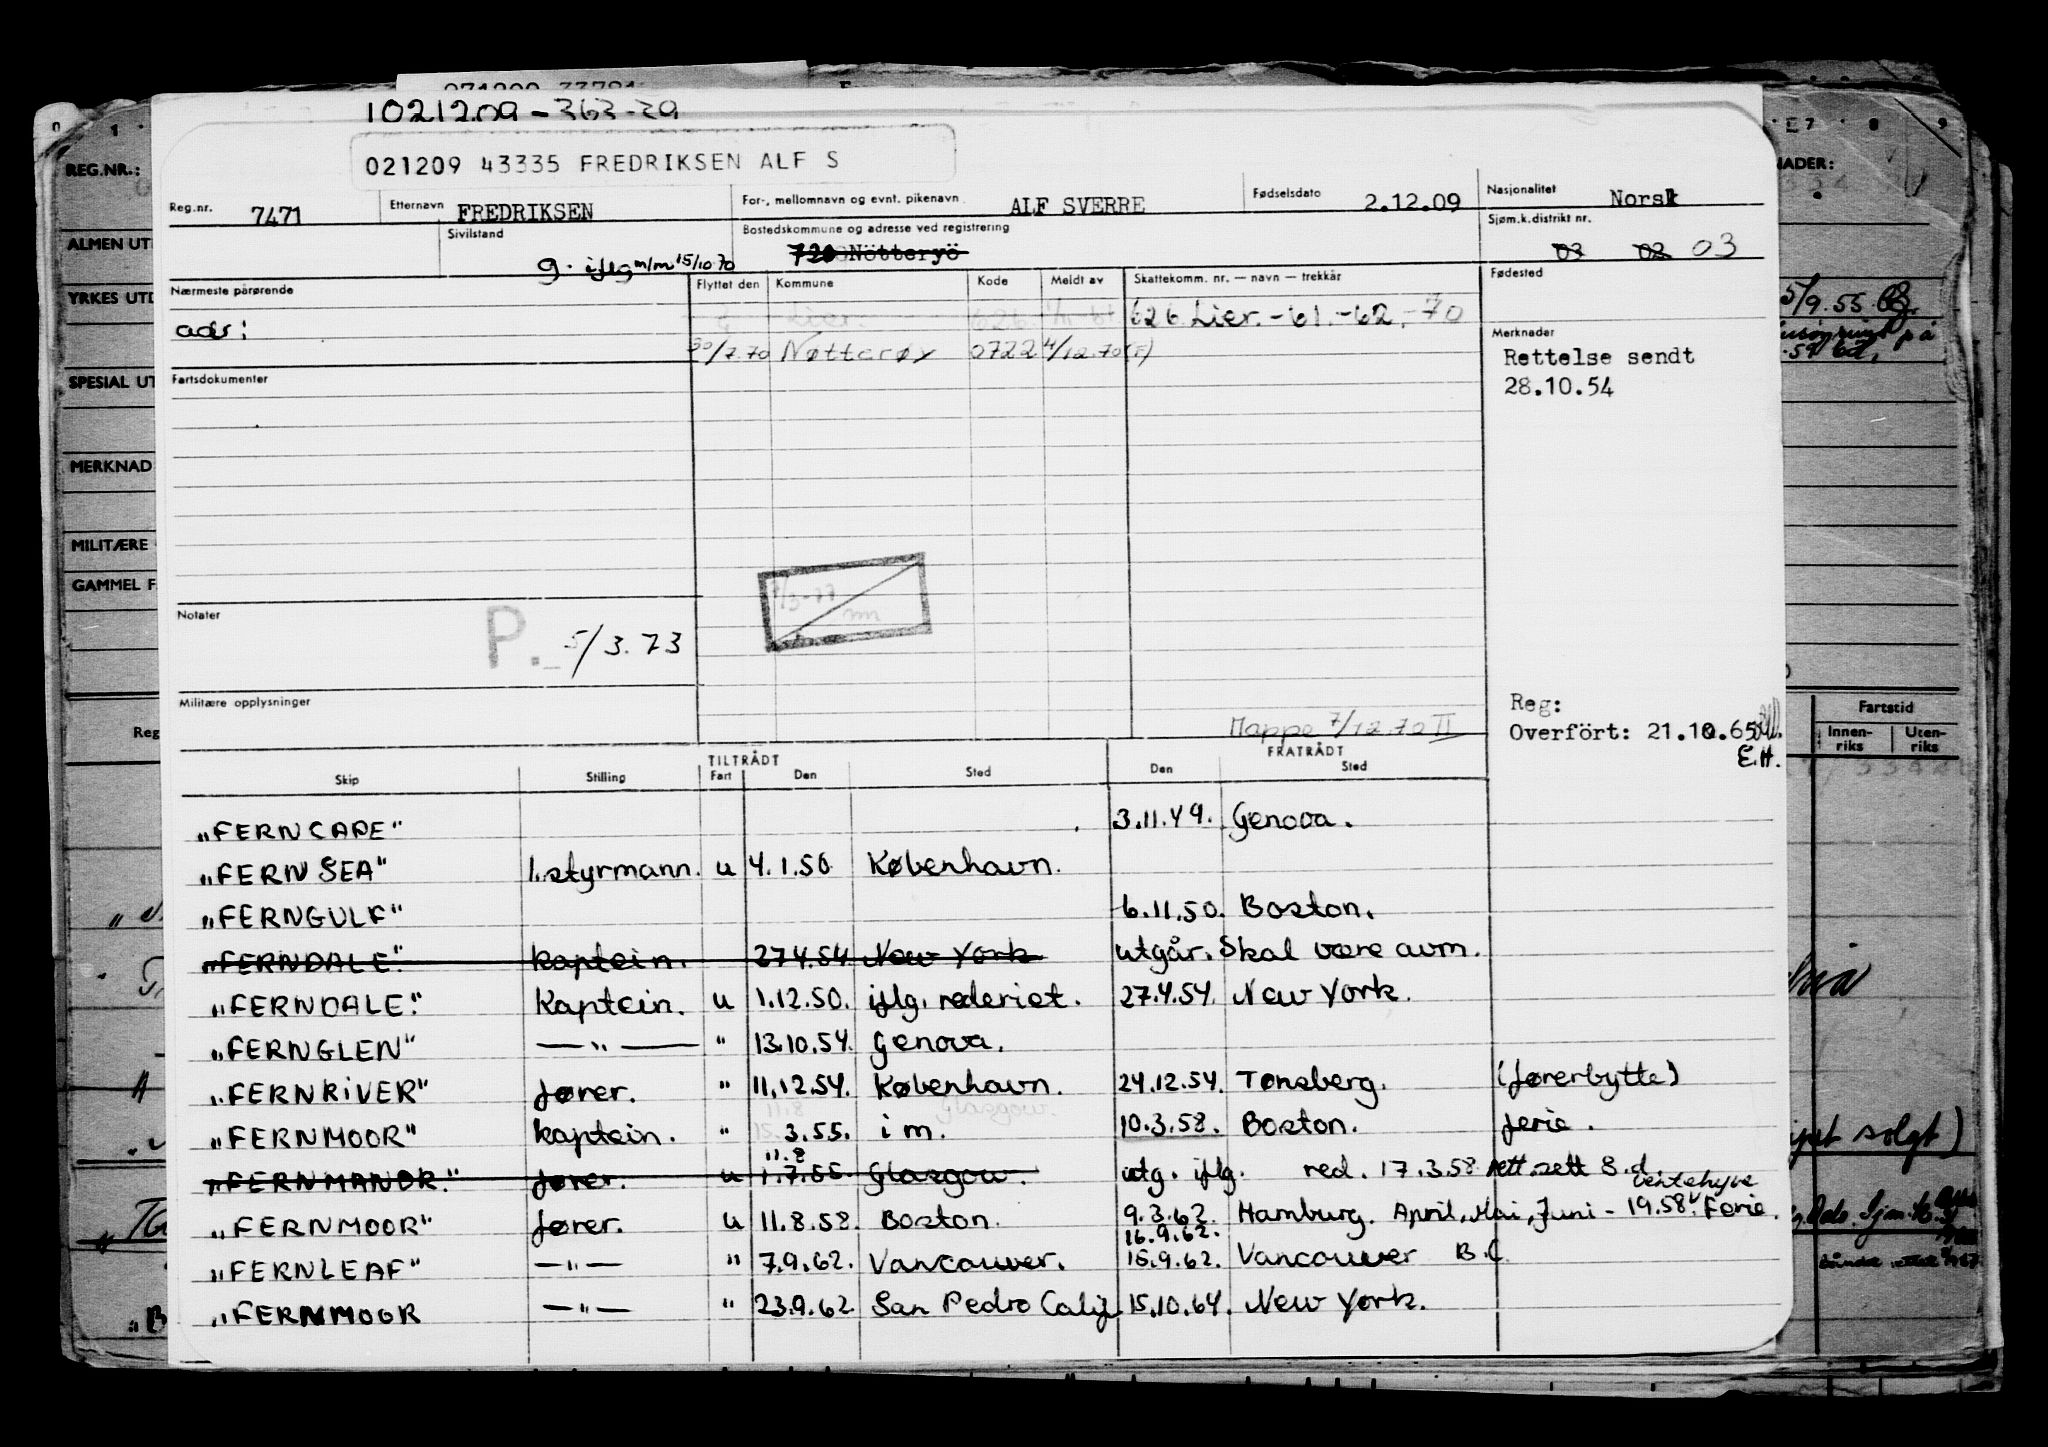 1021209-363-29
021209 43335 FREDRIKSEN ALF S
Reg.nr. 7471 Etternavn FREDRIKSEN For-, mellomnavn og evnt. pikenavn ALF SVERRE Fødselsdato 2.12.09 Nasjonalitet Norsk
Sivilstand g. iflg m/m 15/10 70 Bostedskommune og adresse ved registrering Nötteröy Sjøm.k.distrikt nr. 03 02 03
Nærmeste pårørende Flyttet den Kommune Kode Meldt av Skattekomm. nr. — navn — trekkår Fødested
adr: Lier. 626 626 Lier. -61.-62.-70 Merknader
30/7.70 Nøtterøy 0722 4/12.70 (F) Rettelse sendt
Fartsdokumenter 28.10.54
Notater
P. 5/3.73
Militære opplysninger
Mappe 7/12.70 II
Reg:
Overfört: 21.10.65
E.H.
TILTRÅDT FRATRÅDT
Skip Stilling Fart Den Sted Den Sted
"FERNCAPE" 3.11.49. Genova.
"FERNSEA" 1.styrmann. u 4.1.50 København.
"FERNGULF" 6.11.50. Boston.
"FERNDALE" kaptein. 27.4.54 New York utgår. Skal være avm.
"FERNDALE" Kaptein. u 1.12.50. iflg. rederiet. 27.4.54. New York.
"FERNGLEN" —"— " 13.10.54. Genova.
"FERNRIVER" fører. " 11.12.54. København. 24.12.54. Tønsberg. (førerbytte)
"FERNMOOR" kaptein. " 3.55. i m. 10.3.58. Boston. ferie.
11.8
"FERNMANOR" fører. u 1.7.55. Glasgow. utg. iflg. red. 17.3.58 rett. sett S.d.
"FERNMOOR" fører. u 11.8.58. Boston. 9.3.62. Hamburg. April, Mai, Juni - 19.58. Ferie.
16.9.62.
"FERNLEAF" —"— " 7.9.62. Vancouver. 15.9.62. Vancouver B.C.
"FERNMOOR —"— " 23.9.62 San Pedro Calif 15.10.64. New York.
REG.NR.:
YRKES UTD
SPESIAL UT
MERKNAD
MILITÆRE
Fartstid
Innen-
riks
Uten-
riks